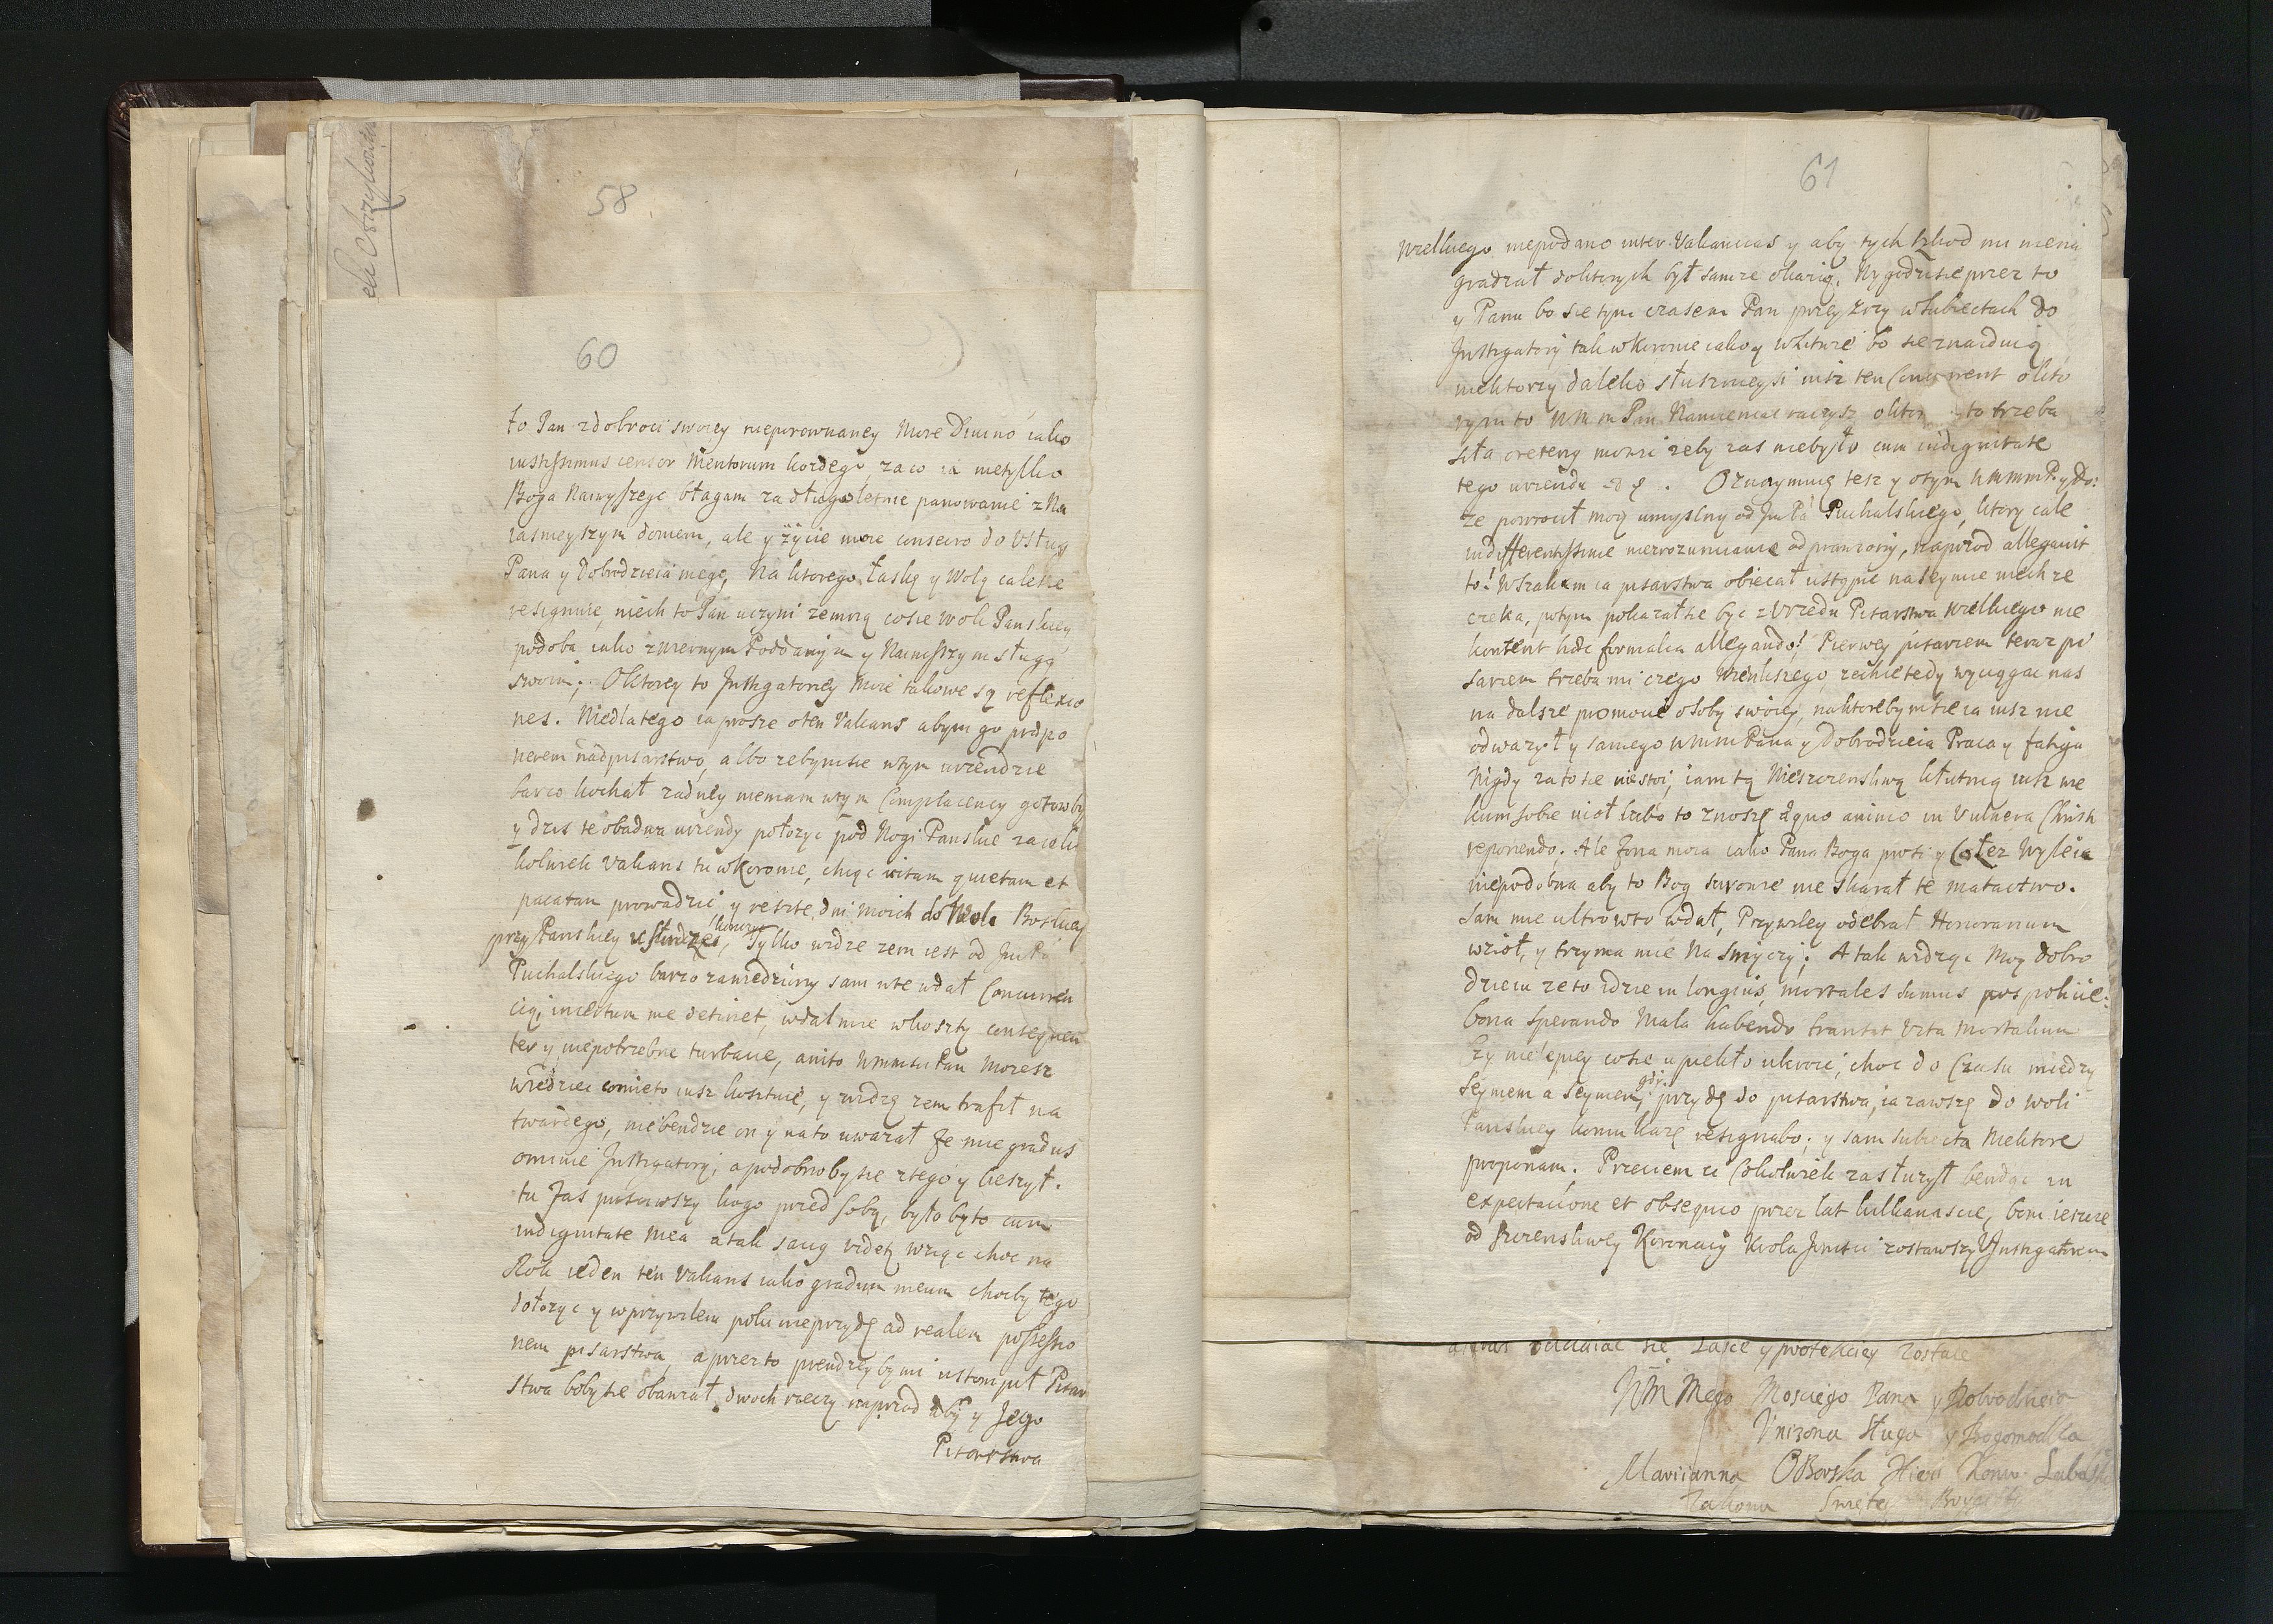 58
60
to Pan zdobroci swoiey nieporownaney More Divino iako
iustissimus censor Meritorum kozdego, za co ia nietylko
Boga Naywyszszego błagam za długoletnie panowanie z Na
iasnieyszym domem, ale y życie moie consecro do Usług
Pana y Dobrodzieia mego, Na ktorego łaskę y Wolą całe sie
resignuie, niech to Pan uczyni zemną co sie woli Panskiey
podoba iako z wiernym Poddanym y Nainiszszym sługą
swoim; Oktorey to Instigatoriey moie takowe są reflexio
nes. Niedlatego ia prosze oten Vakans abym go prdpo
nerem nadpisarstwo, albo zebym sie wtym urzendzie
barzo kochał zadney niemam wtym Complacency gotowby
y dzis te obadwa urzendy położyc pod Nogi Panskie za iaki
kolwiek vakans tu wkoronie, chcąc vitam quietam et
pacatam prowadzic, y reszte dni moich do Woli Boskiey
przy Panskiey usłudze konczyc, Tylko widze zem iest od Jm Pa
Puchalskiego barzo zawiedziony sam w te wdał Concurren
cią, incertum me detinet, wdał mie wkoszty consequen
ter y niepotrzebne turbacie, a nito Wmmsci Pan mozesz
wiedziec comieto iusz kosztuie, y widzę zem trafił na
twardego, niebendzie on y na to uwazał ze mie gradus
ominie Instigatoriy, a podobnoby sie ztego y cieszył.
tu zas pusciwszy kogo przed sobą, byłoby to cum
indignitate mea a tak sacią videtę wziąc choc na
Rok ieden ten Vakans iako gradum meum choćby tego
dołożyc y wprzywileiu poki nieprzydę ad realem possessio
nem pisarstwa, a przezto prendzeyby mi ustompił Pisar
stwa boby sie obawiał dwoch rzeczy naprzod aby y Jego
Pisarstwa
61
Wielkiego niepodano inter Vakancias y aby tych szkod mi nena
gradzał doktorych był samze okazią. Wygodzi sie przez to
y Panu bo sie tym czasem Pan przeyzrzy wsubiectach do
Instigatoriy tak wKoronie iako y wLitwie bo sie znaiduią
niektorzy daleko słusznieysi nisz ten Concurrent okto
rym to Wm m Pan Namieniac raczysz oktor to trzeba
siła oretenij mowic zeby zas niebyło cum indignitate
tego urzendu . Oznaymuię tesz y otym Wmmm P. y Do:
ze powrocił moy umyslny od Jm Pa Puchalskiego, ktory cale
indifferentissime nierozumianie odprawiony, naprzod allegavit
to! Wszakem ia pisarstwa obiecał ustąpic na seymie niech ze
czeka, potym pokazał sie byc z Urzedu Pisarstwa Wielkiego nie
kontent haec formalia allegando! Pierwey pisarzem teraz pi
sarzem trzeba mi czego Wienkszego, zechce tedy wyciągac nas
na dalsze promocie osoby swoiey, naktorebym sie ia iusz nie
odwazył y samego Wmm Pana y Dobrodzieia Praca y fatiga
Nigdy zato sie niestoi, iam tą Nieszczensliwą kłutnią iusz we
kum sobie uioł lubo to znoszę aquo animo in Vulnera Christi
reponendo. Ale zona moia iako Pana Boga prosi y Całez Wyleie
niepodobna aby to Bog surowie nie skarał te matactwo.
Sam mie ultro wto wdał, Przywiley odebrał Honorarium
wzioł, y trzyma mie Na smyczy; A tak widząc moy dobro
dzieiu ze to idzie in longius, mortales sumus pospolicie:
bona sperando Mala habendo transit Vita Mortalium
Czy nielepiey co sie upiekło ukroic, choc do Czasu miedzy
Seymem a Seymem, gdy przydę do pisarstwa, ia zawszę do woli
Panskiey komu każę resignabo; y sam subiecta Niektore
proponam. Przeciem ci Cokolwiek zasłuzył bendąc in
expectatione et obsequio przez lat kilkanascie, bom ieszcze
od szczensliwey Koronaciy Krola Jmsci zostawszy VInstigatorem
oddaiąc się Łasce y protekciey zostaie
WM Mego Mosciego Pana y Dobrodzieia
Vnizona Sługa y Bogomodlca
Mariianna OBorska Xieni Konw. Lubelski
Zakonu Swiętey Brygitty